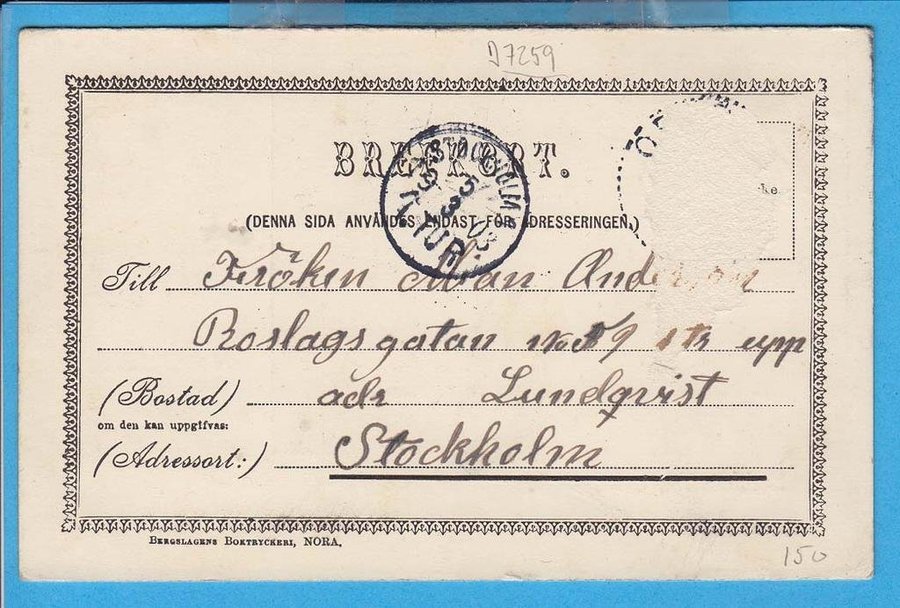 D7259
BREFKORT.
(DENNA SIDA ANVÄNDES ENDAST FÖR ADRESSERINGEN.)
STOCKHOLM
5 3 03
TUR
Till Fröken Andersson
Roslagsgatan 9 1 tr upp
(Bostad) adr Lundqvist
om den kan uppgifvas:
(Adressort:) Stockholm
BERGSLAGENS BOKTRYCKERI, NORA.
150